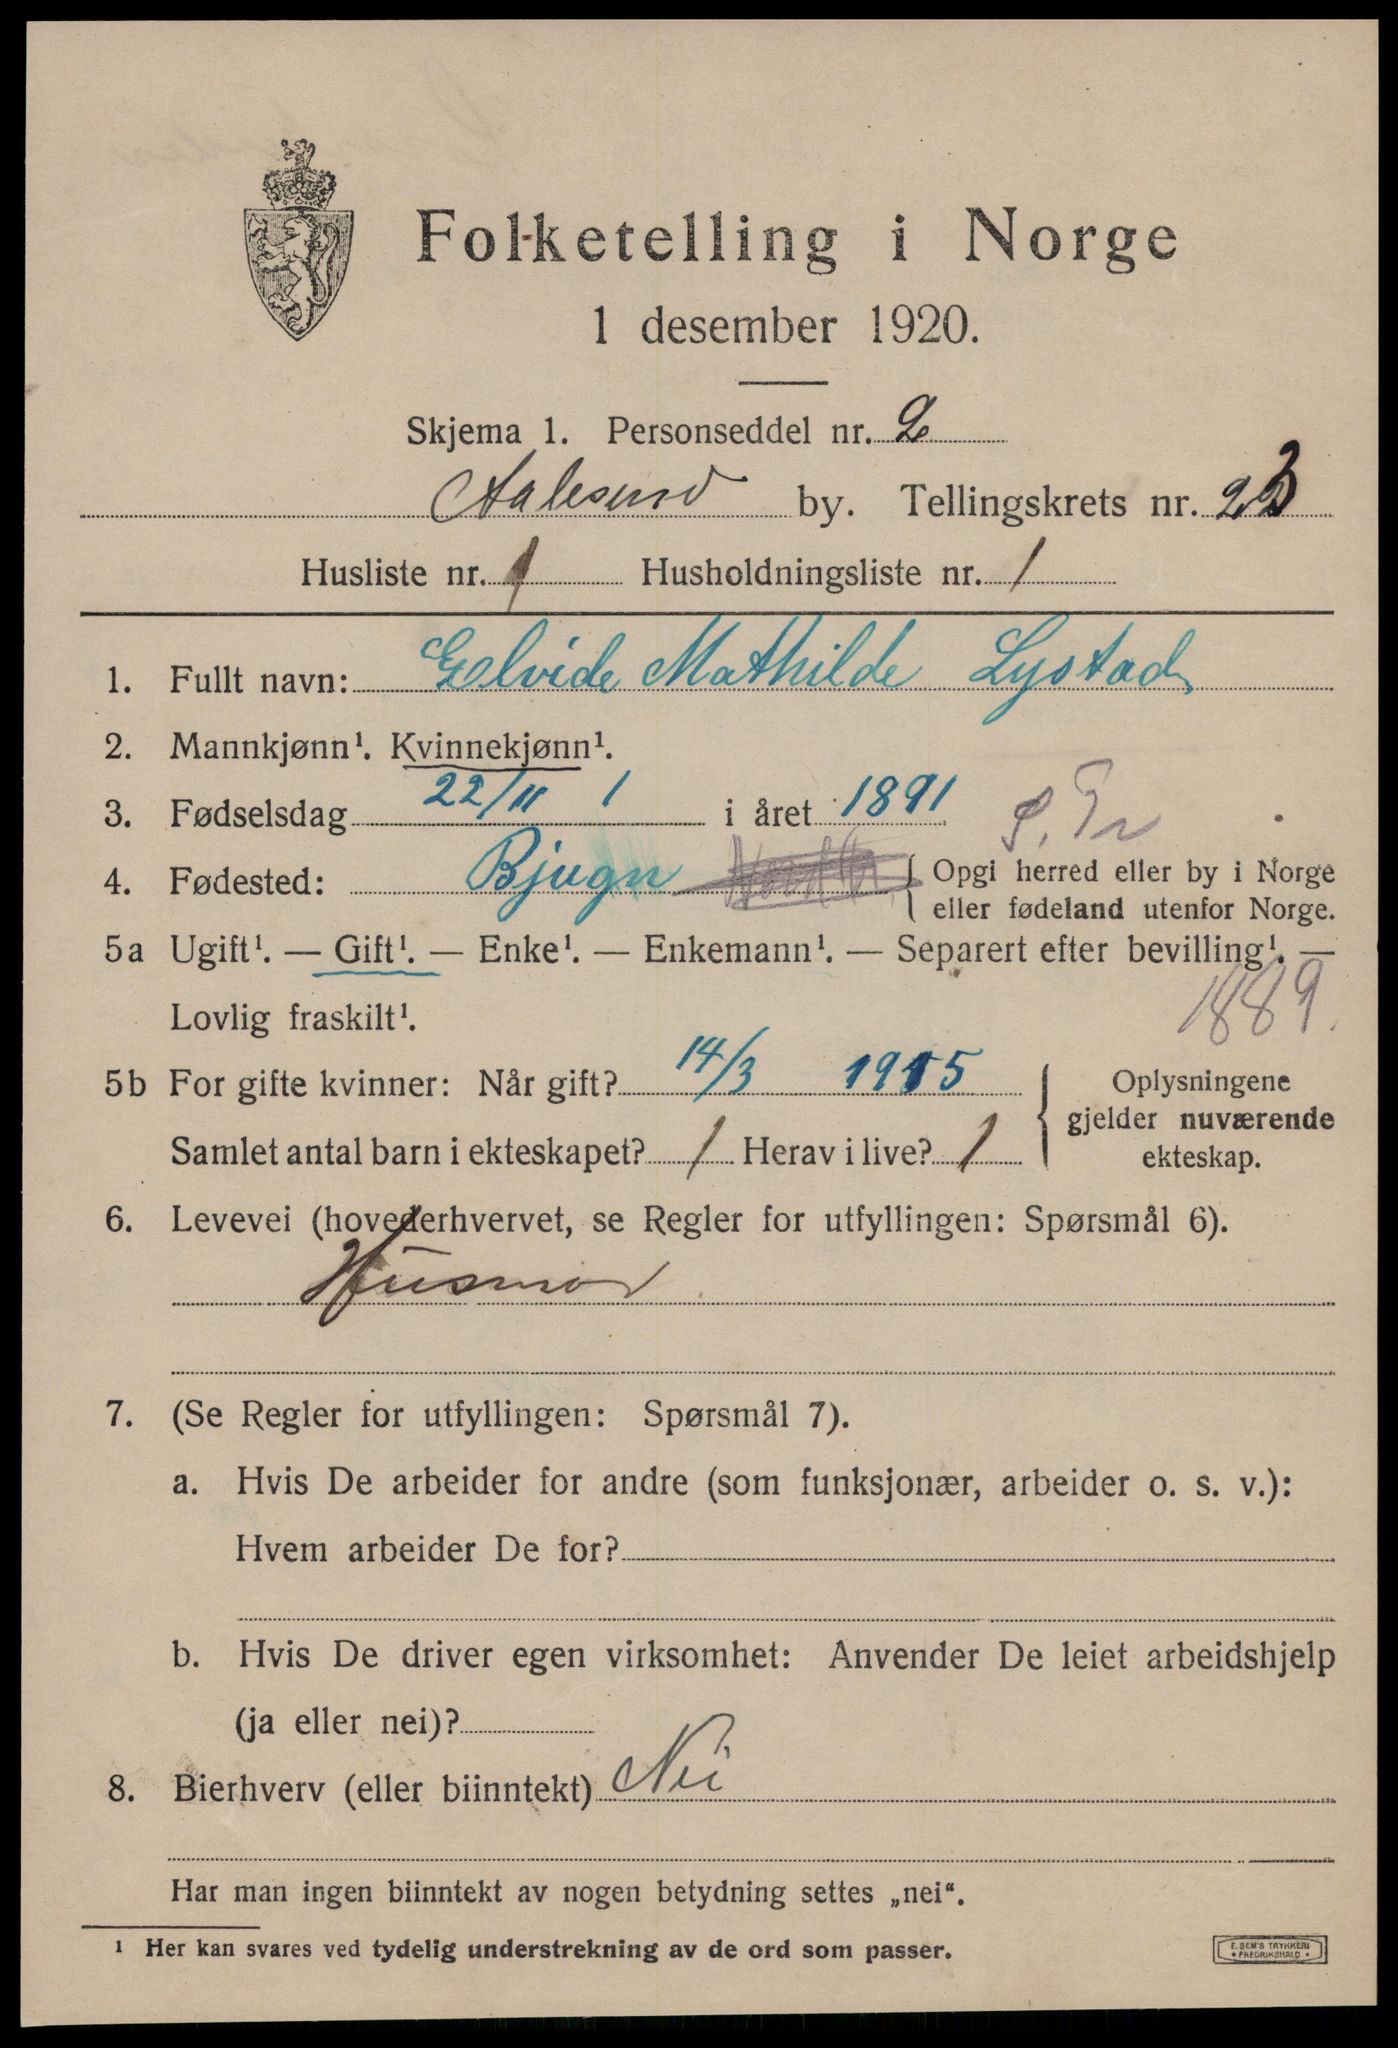 Folketelling i Norge
1 desember 1920.
Skjema 1. Personseddel nr. 2
Aalesund by. Tellingskrets nr. 23
Husliste nr. 1 Husholdningsliste nr. 1
1. Fullt navn: Elvide Mathilde Lystad
2. Mannkjønn¹. Kvinnekjønn¹.
3. Fødselsdag 22/11 1 i året 1891
4. Fødested: Bjugn { Opgi herred eller by i Norge
eller fødeland utenfor Norge.
S. Tr
5a Ugift¹. — Gift¹. — Enke¹. — Enkemann¹. — Separert efter bevilling¹. —
Lovlig fraskilt¹. 1889.
5b For gifte kvinner: Når gift? 14/3 1915 { Oplysningene
gjelder nuværende
ekteskap.
Samlet antal barn i ekteskapet? 1 Herav i live? 1
6. Levevei (hovederhvervet, se Regler for utfyllingen: Spørsmål 6).
Husmor
7. (Se Regler for utfyllingen: Spørsmål 7).
a. Hvis De arbeider for andre (som funksjonær, arbeider o. s. v.):
Hvem arbeider De for?
b. Hvis De driver egen virksomhet: Anvender De leiet arbeidshjelp
(ja eller nei)?
8. Bierhverv (eller biinntekt) Nei
Har man ingen biinntekt av nogen betydning settes „nei“.
¹ Her kan svares ved tydelig understrekning av de ord som passer.
E. SEM'S TRYKKERI
FREDRIKSHALD